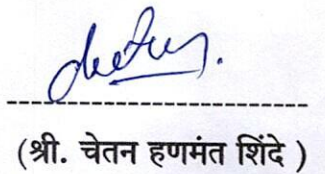 (श्री. चेतन हणमंत शिंदे )